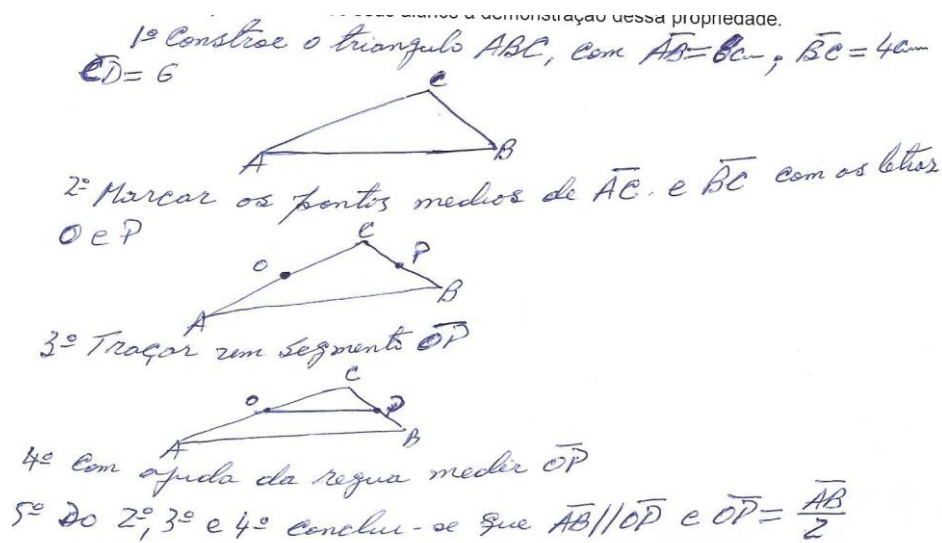 seus alunos a demonstração dessa propriedade.
1º Constroe o triangulo ABC, com AB=8cm, BC=4cm
CD=6
C
A B
2º Marcar os pontos medios de AC e BC com as letras
O e P
C
O P
A B
3º Traçar um segmento OP
C
O P
A B
4º Com ajuda da regua medir OP
5º Do 2º, 3º e 4º conclui-se que AB//OP e OP=AB/2